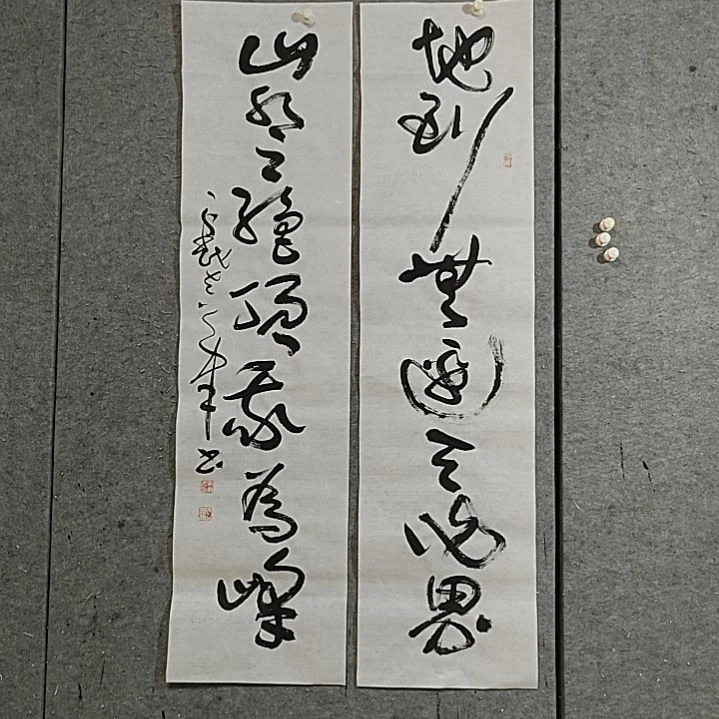 地到無邊天作界
山登絕頂我為峰
書